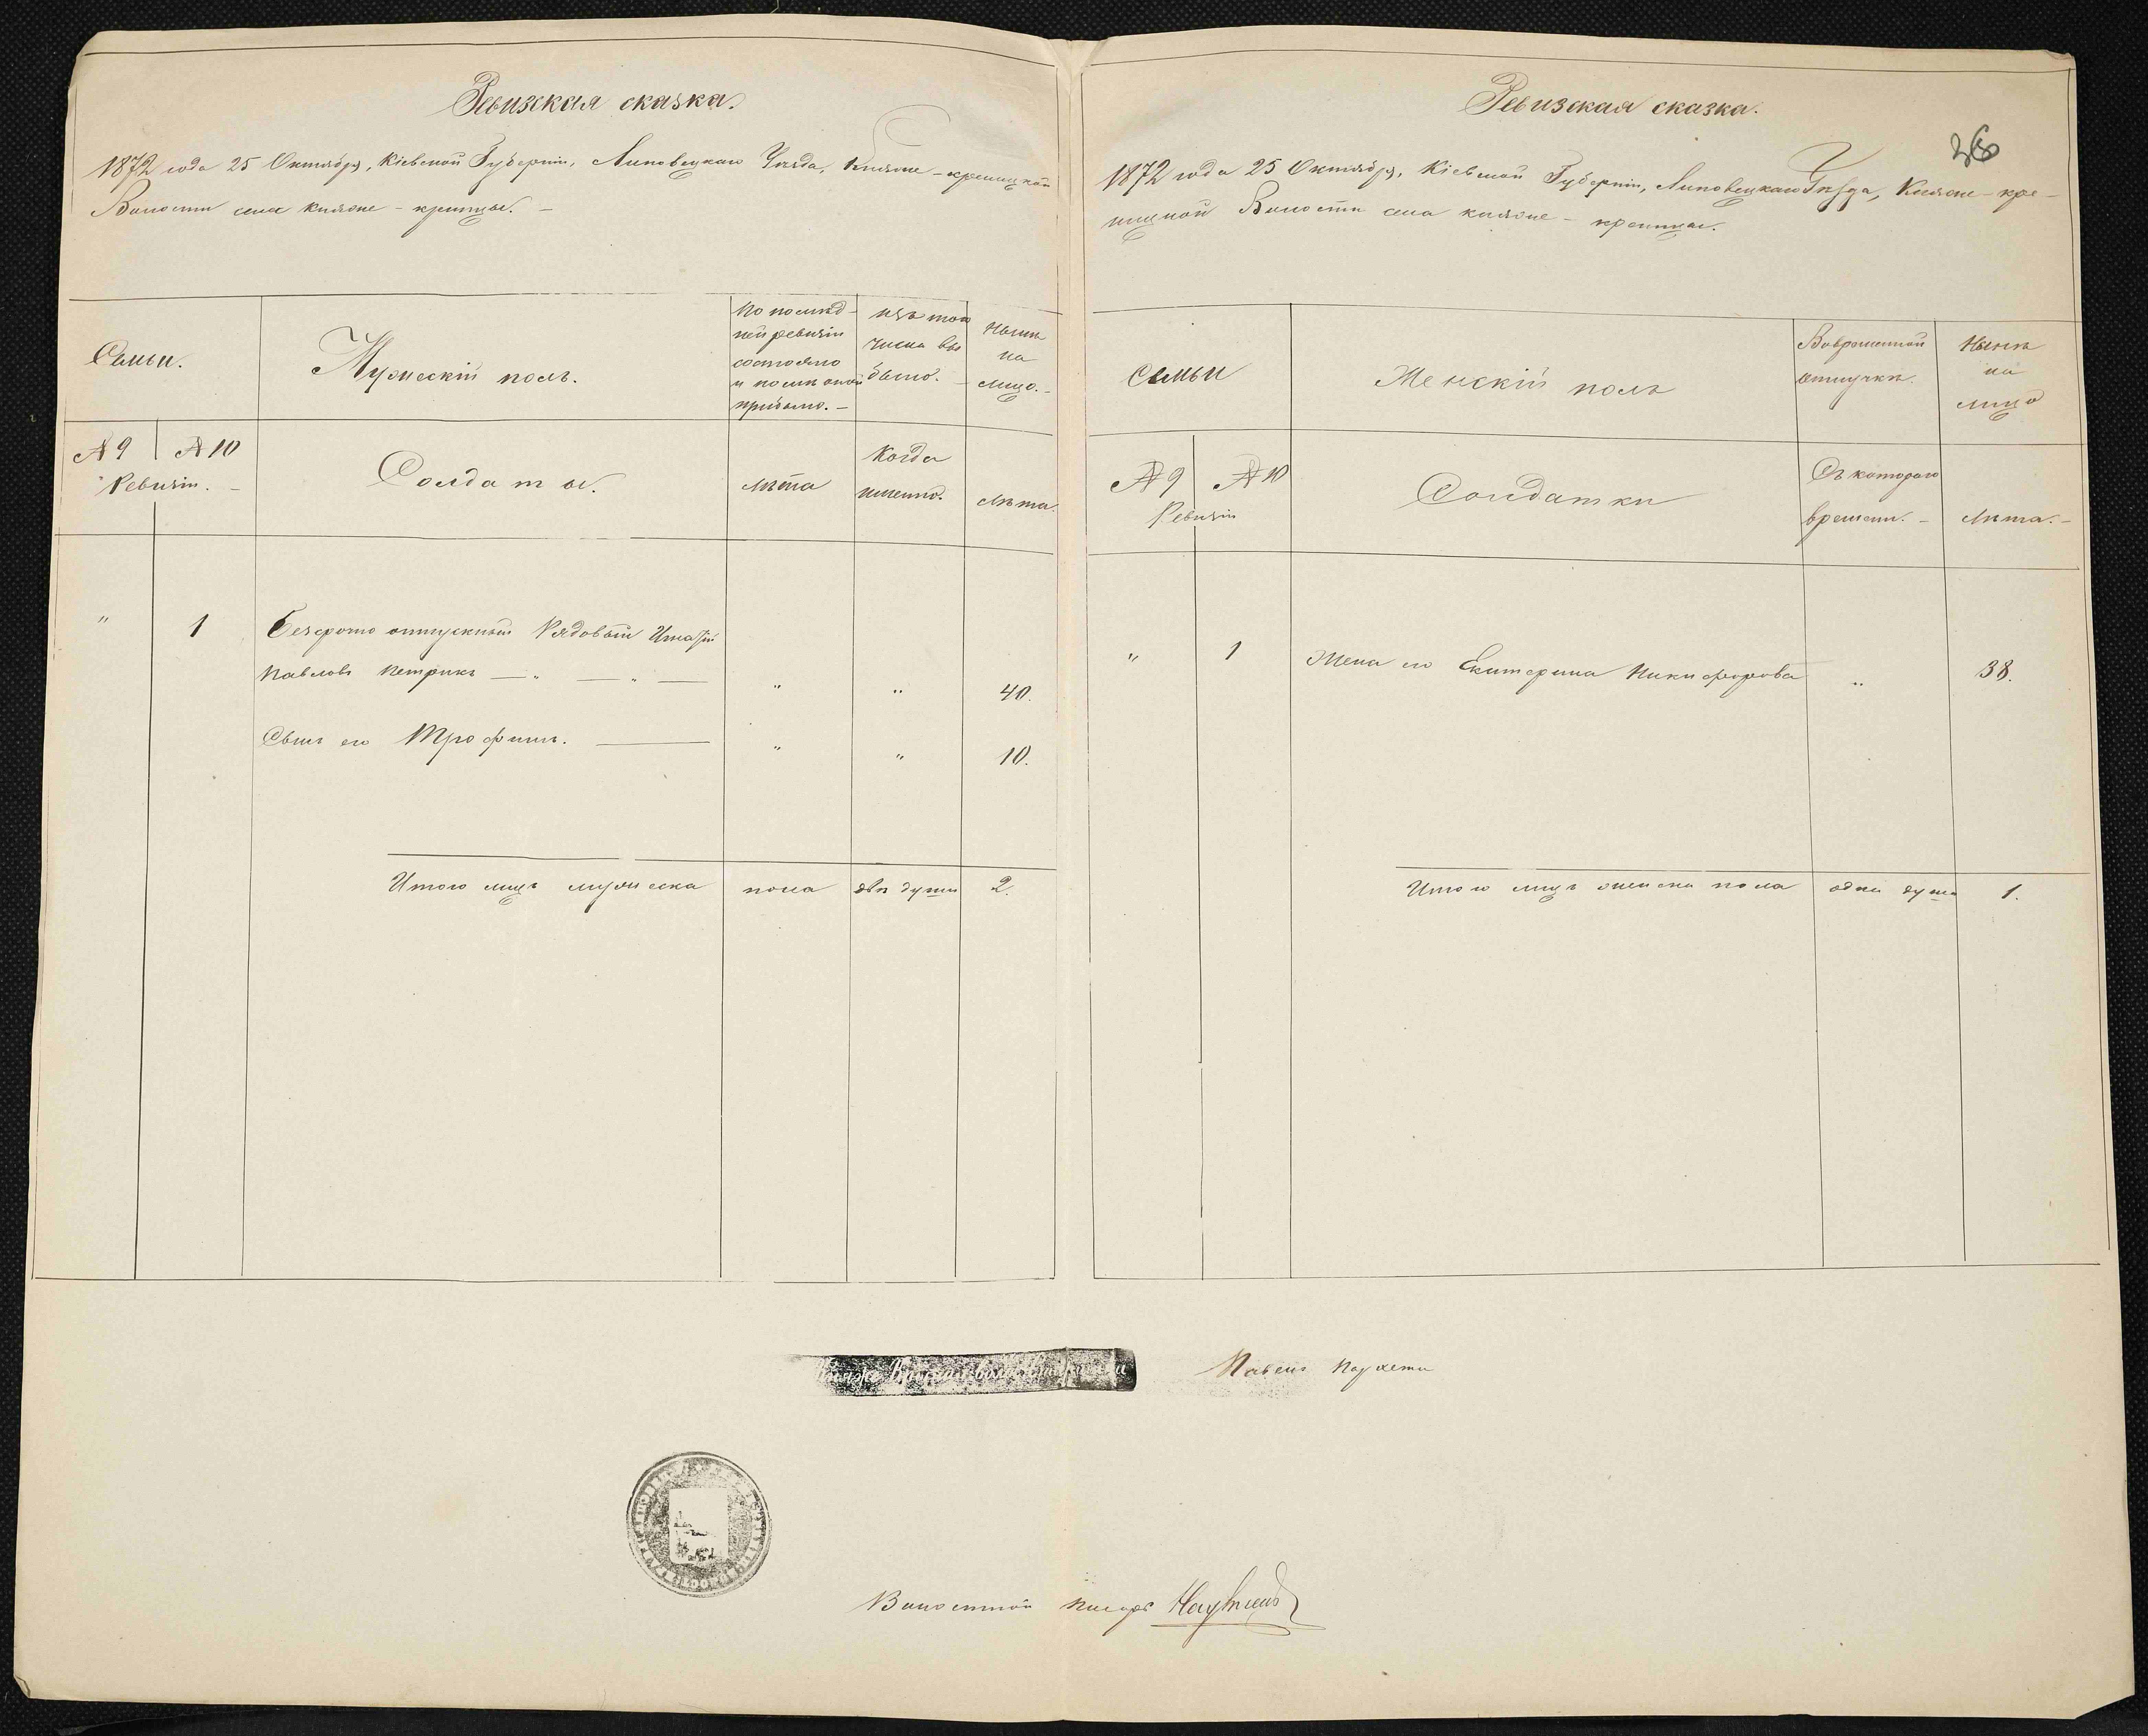 Ревизская сказка.
1872 года 25 Октября, Кіевской Губерніи, Липовецкаго Уѣзда, Княже-креницкой
Волости села Княже-креницы. —
Семьи.
Мужескій полъ.
По послѣд-
ней ревизіи
состояло
и послѣ оной
прибыло. —
Изъ того
числа вы
было. —
Нынѣ
на
лицо. —
№ 9
№ 10
Ревизіи. —
Солдаты.
Лѣта
Когда
именно.
Лѣта.
"
1
Безсрочно отпускный Рядовый Игнатій
Павловъ Петрикъ — " — " —
"
"
40.
Сынъ его Трофимъ. —
"
"
10.
Итого лицъ мужеска пола двѣ души 2.
Ревизская сказка.
36
1872 года 25 Октября, Кіевской Губерніи, Липовецкаго Уѣзда, Княже-кре-
ницкой Волости села княже-креницы.
Семьи
Женскій полъ
Вовременной
отлучкѣ.
Нынѣ
на
лицо
№ 9
№ 10
Ревизіи
Солдатки
Съ котораго
времени. —
Лѣта. —
"
1
Жена его Екатерина Никифорова
"
38.
Итого лицъ женска пола одна душа 1.
Павелъ
Волостной писарь